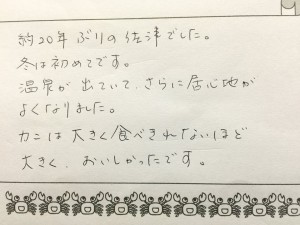 約20年ぶりの佐津でした。
冬は初めてです。
温泉が出ていて、さらに居心地が
よくなりました。
カニは大きく食べきれないほど
大きく、おいしかったです。